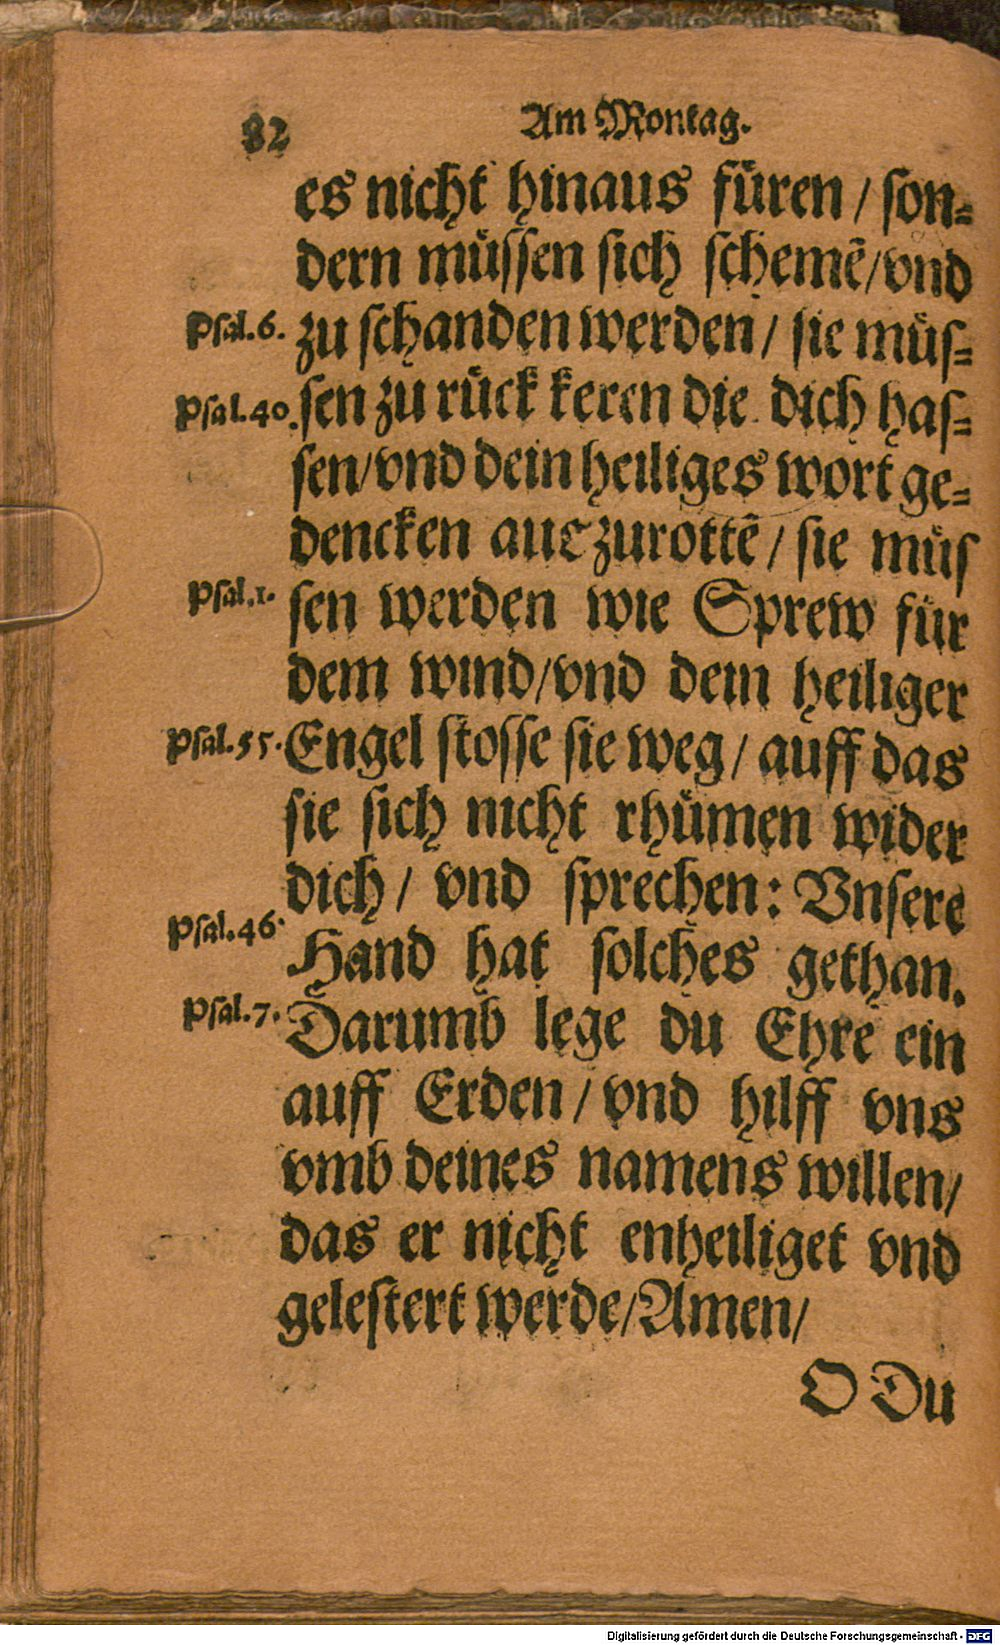 82
Am Montag.
es nicht hinaus füren / son⸗
dern müssen sich schemẽ / vnd
Psal. 6. zu schanden werden / sie müs⸗
Psal. 40. sen zu rück keren die dich has⸗
sen / vnd dein heiliges wort ge⸗
dencken auszurottẽ / sie müs
Psal. 1. sen werden wie Sprew für
dem wind / vnd dein heiliger
Psal. 55. Engel stosse sie weg / auff das
sie sich nicht rhümen wider
dich / vnd sprechen: Vnsere
Psal. 46. Hand hat solches gethan.
Psal. 7. Darumb lege du Ehre ein
auff Erden / vnd hilff vns
vmb deines namens willen /
das er nicht enheiliget vnd
gelestert werde / Amen /
O Du
Digitalisierung gefördert durch die Deutsche Forschungsgemeinschaft - DFG